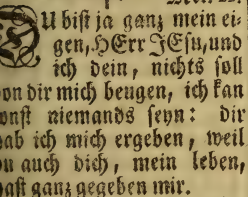 DU bist ja gantz mein ei
gen, HErr JEsu, und
ich dein, nichts soll
von dir mich beugen, ich kan
sonst niemands seyn: dir
hab ich mich ergeben, weil
du auch dich, mein leben,
hast gantz gegeben mir.